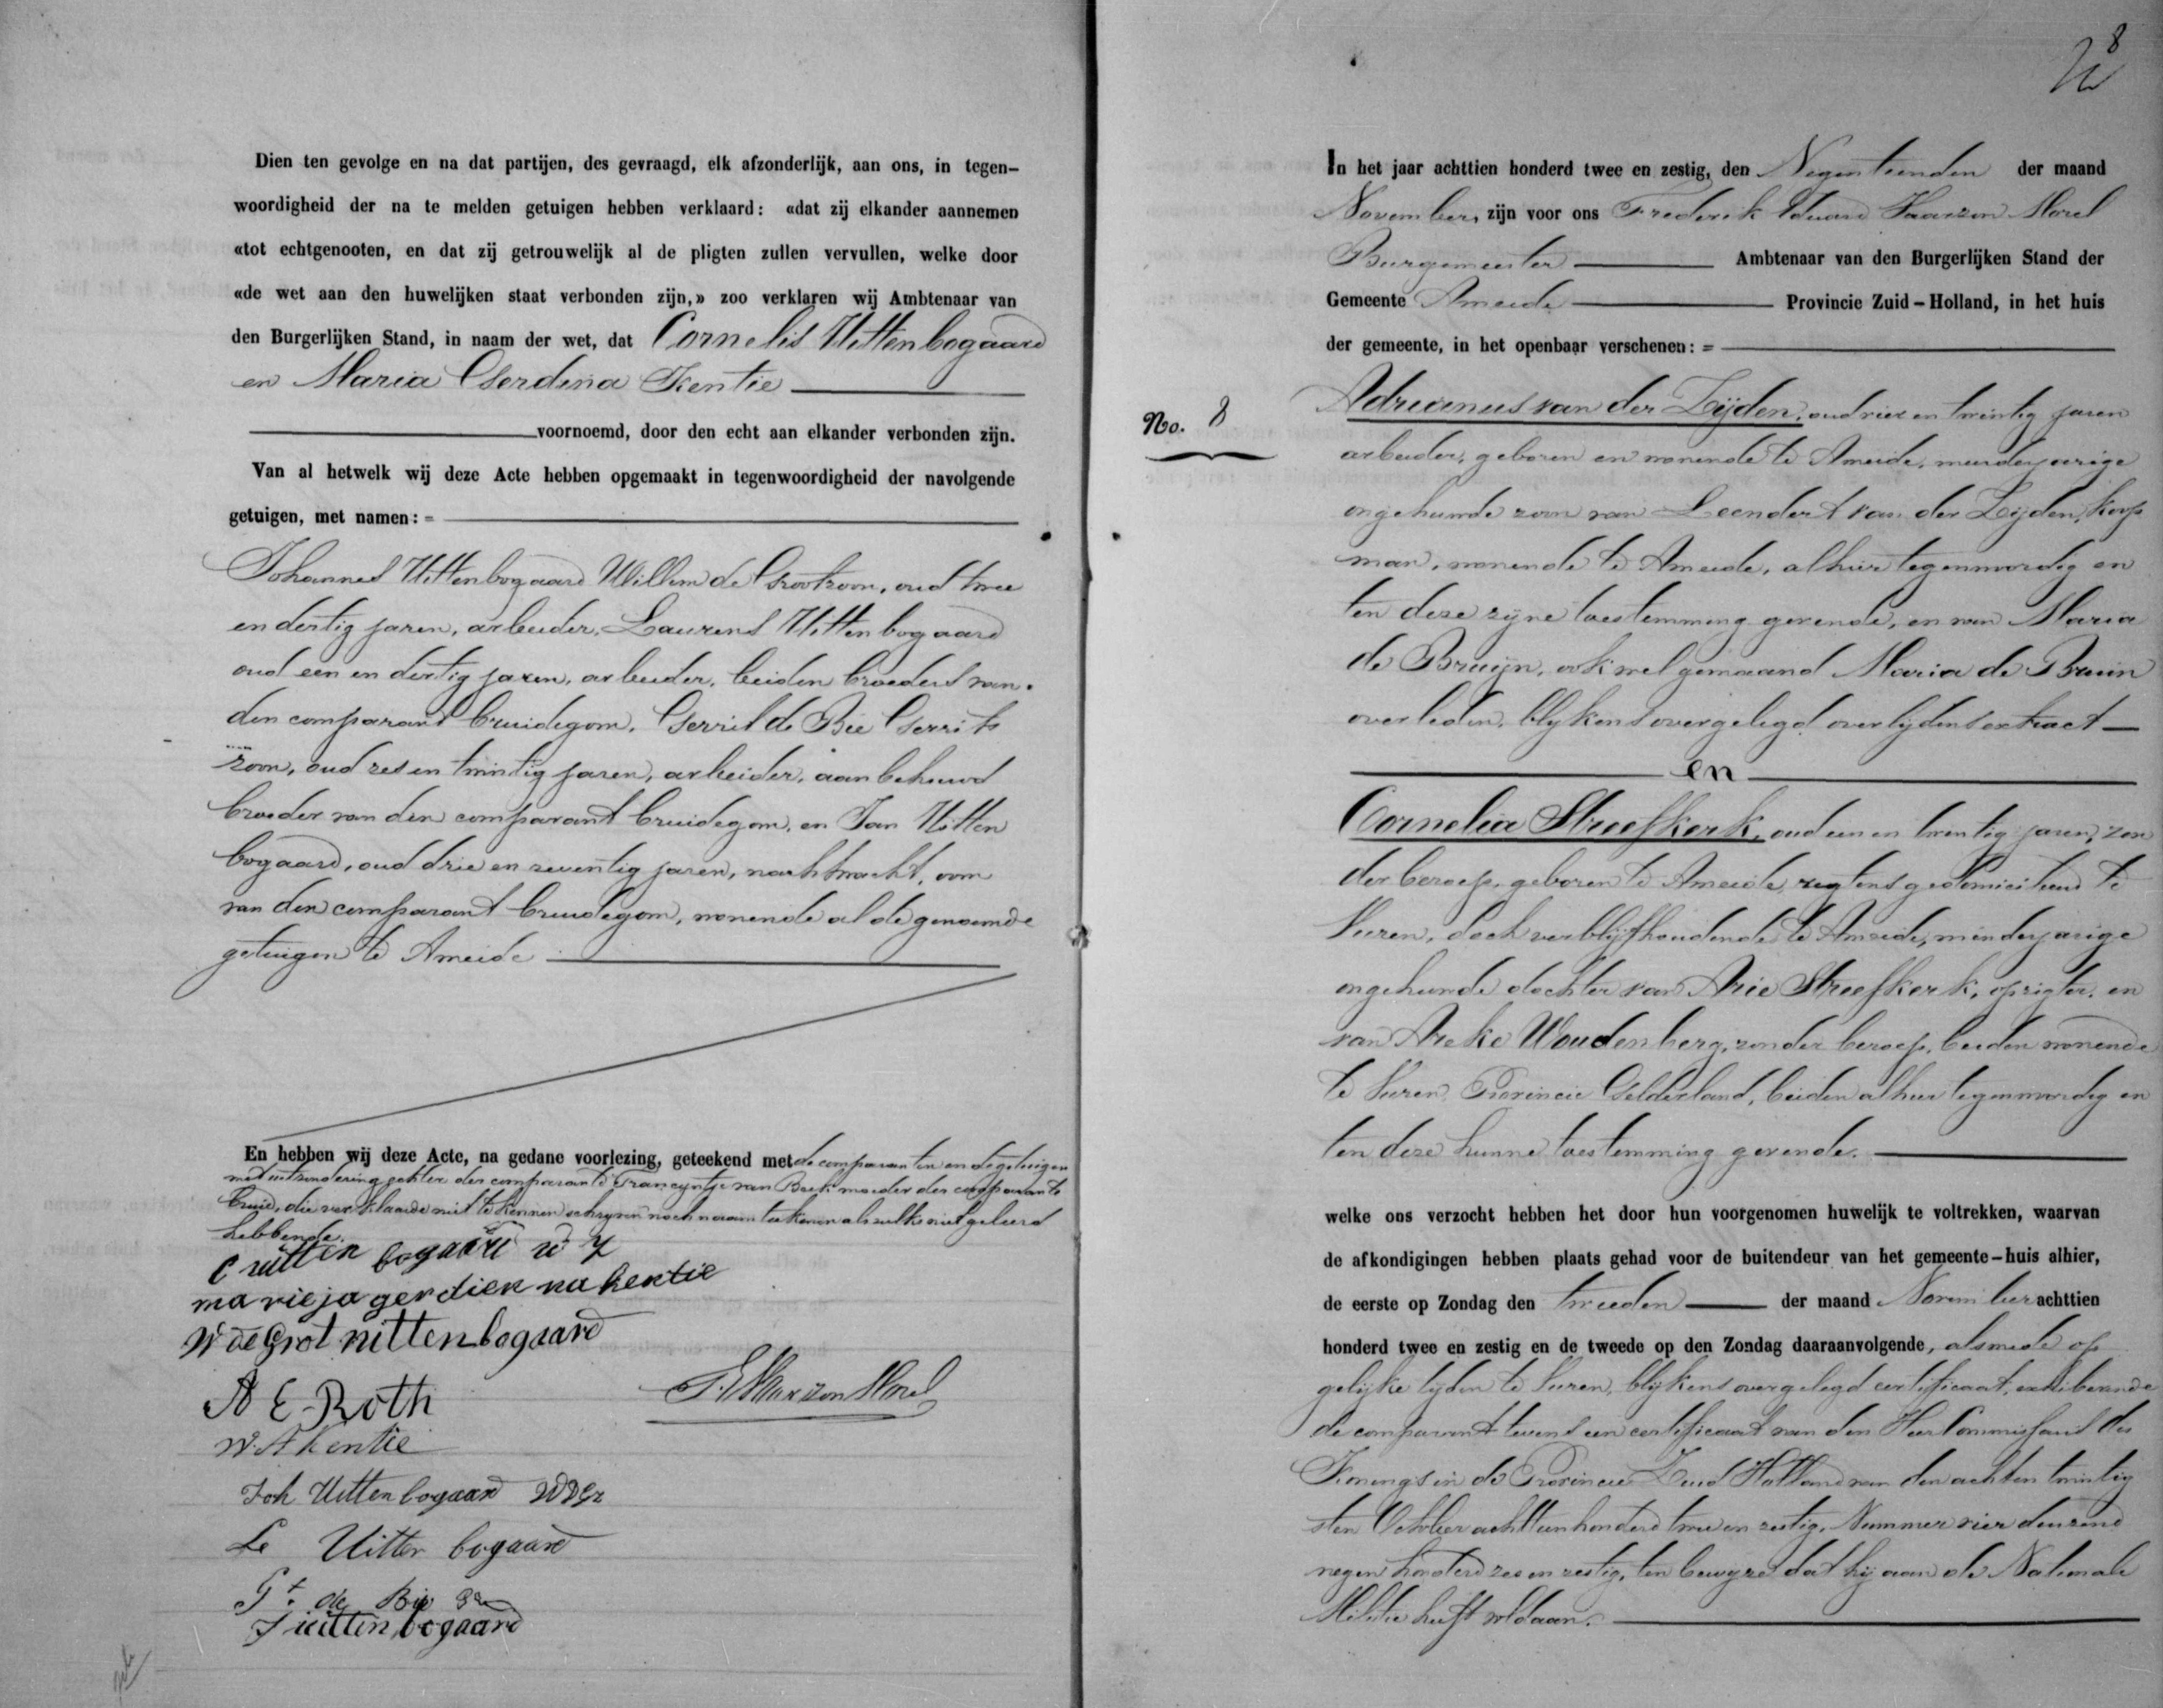 Dien ten gevolge en na dat partijen, des gevraagd, elk afzonderlijk, aan ons, in tegen-
woordigheid der na te melden getuigen hebben verklaard: «dat zij elkander aannemen
«tot echtgenooten, en dat zij getrouwelijk al de pligten zullen vervullen, welke door
«de wet aan den huwelijken staat verbonden zijn,» zoo verklaren wij Ambtenaar van
den Burgerlijken Stand, in naam der wet, dat Cornelis Uittenbogaard
en Maria Gerdina Kentie
voornoemd, door den echt aan elkander verbonden zijn.
Van al hetwelk wij deze Acte hebben opgemaakt in tegenwoordigheid der navolgende
getuigen, met namen: =
Johannes Uittenbogaard Willem de Grootzoon, oud twee
en dertig jaren, arbeider, Laurens Uittenbogaard
oud een en dertig jaren, arbeider, beiden broeders van
den comparant bruidegom, Gerrit de Bie Gerrits
zoon, oud zes en twintig jaren, arbeider, aanbehuwd
broeder van den comparant bruidegom, en Jan Uitten
bogaard, oud drie en zeventig jaren, nachtwacht, oom
van den comparant bruidegom, wonende al de genoemde
getuigen te Ameide
En hebben wij deze Acte, na gedane voorlezing, geteekend met de comparanten en de getuigen
met uitzondering echter der comparante Francyntje van Beek moeder der comparante
bruid, die verklaarde niet te kennen schryven noch naamteekenen als zulks niet geleerd
hebbende.
C uitten bogaard w z
marieja gerdien na kentie
W de Grot uittenbogaard
A E Roth
F. E. Haarzon Morel
W. A Kentie
Joh Uittenbogaard WDGz
La Uitten bogaard
Gt. de Bie Gz
J uittenbogaard
8
In het jaar achttien honderd twee en zestig, den Negentienden der maand
November, zijn voor ons Frederik Eduard Haarzon Morel
Burgemeester Ambtenaar van den Burgerlijken Stand der
Gemeente Ameide Provincie Zuid-Holland, in het huis
der gemeente, in het openbaar verschenen: =
No. 8
Adrianus van der Zijden, oud vier en twintig jaren
arbeider, geboren en wonende te Ameide, meerderjarige
ongehuwde zoon van Leendert van der Zijden, koop
man, wonende te Ameide, alhier tegenwoordig en
ten deze zijne toestemming gevende, en van Maria
de Bruijn, ook wel genaamd Maria de Bruin
overleden, blykens overgelegd overlijdensextract
en
Cornelia Streefkerk, oud een en twintig jaren, zon
der beroep, geboren te Ameide, regtens gedomicilieerd te
Buren, doch verblijfhoudende te Ameide, minderjarige
ongehuwde dochter van Arie Streefkerk, oprigter, en
van Areke Woudenberg, zonder beroep, beiden wonende
te Buren, Provincie Gelderland, beiden alhier tegenwoordig en
ten deze hunne toestemming gevende.
welke ons verzocht hebben het door hun voorgenomen huwelijk te voltrekken, waarvan
de afkondigingen hebben plaats gehad voor de buitendeur van het gemeente-huis alhier,
de eerste op Zondag den tweeden der maand November achttien
honderd twee en zestig en de tweede op den Zondag daaraanvolgende, alsmede op
gelijke tijden te Buren, blijkens overgelegd certificaat, exhiberende
de comparant tevens een certificaat van den Heer Commissaris des
Konings in de Provincie Zuid Holland van den achten twintig
sten October achttienhonderd twee en zestig, Nummer vier duizend
negen honderd zes en zestig, ten bewyze dat hij aan de Nationale
Militie heeft voldaan.